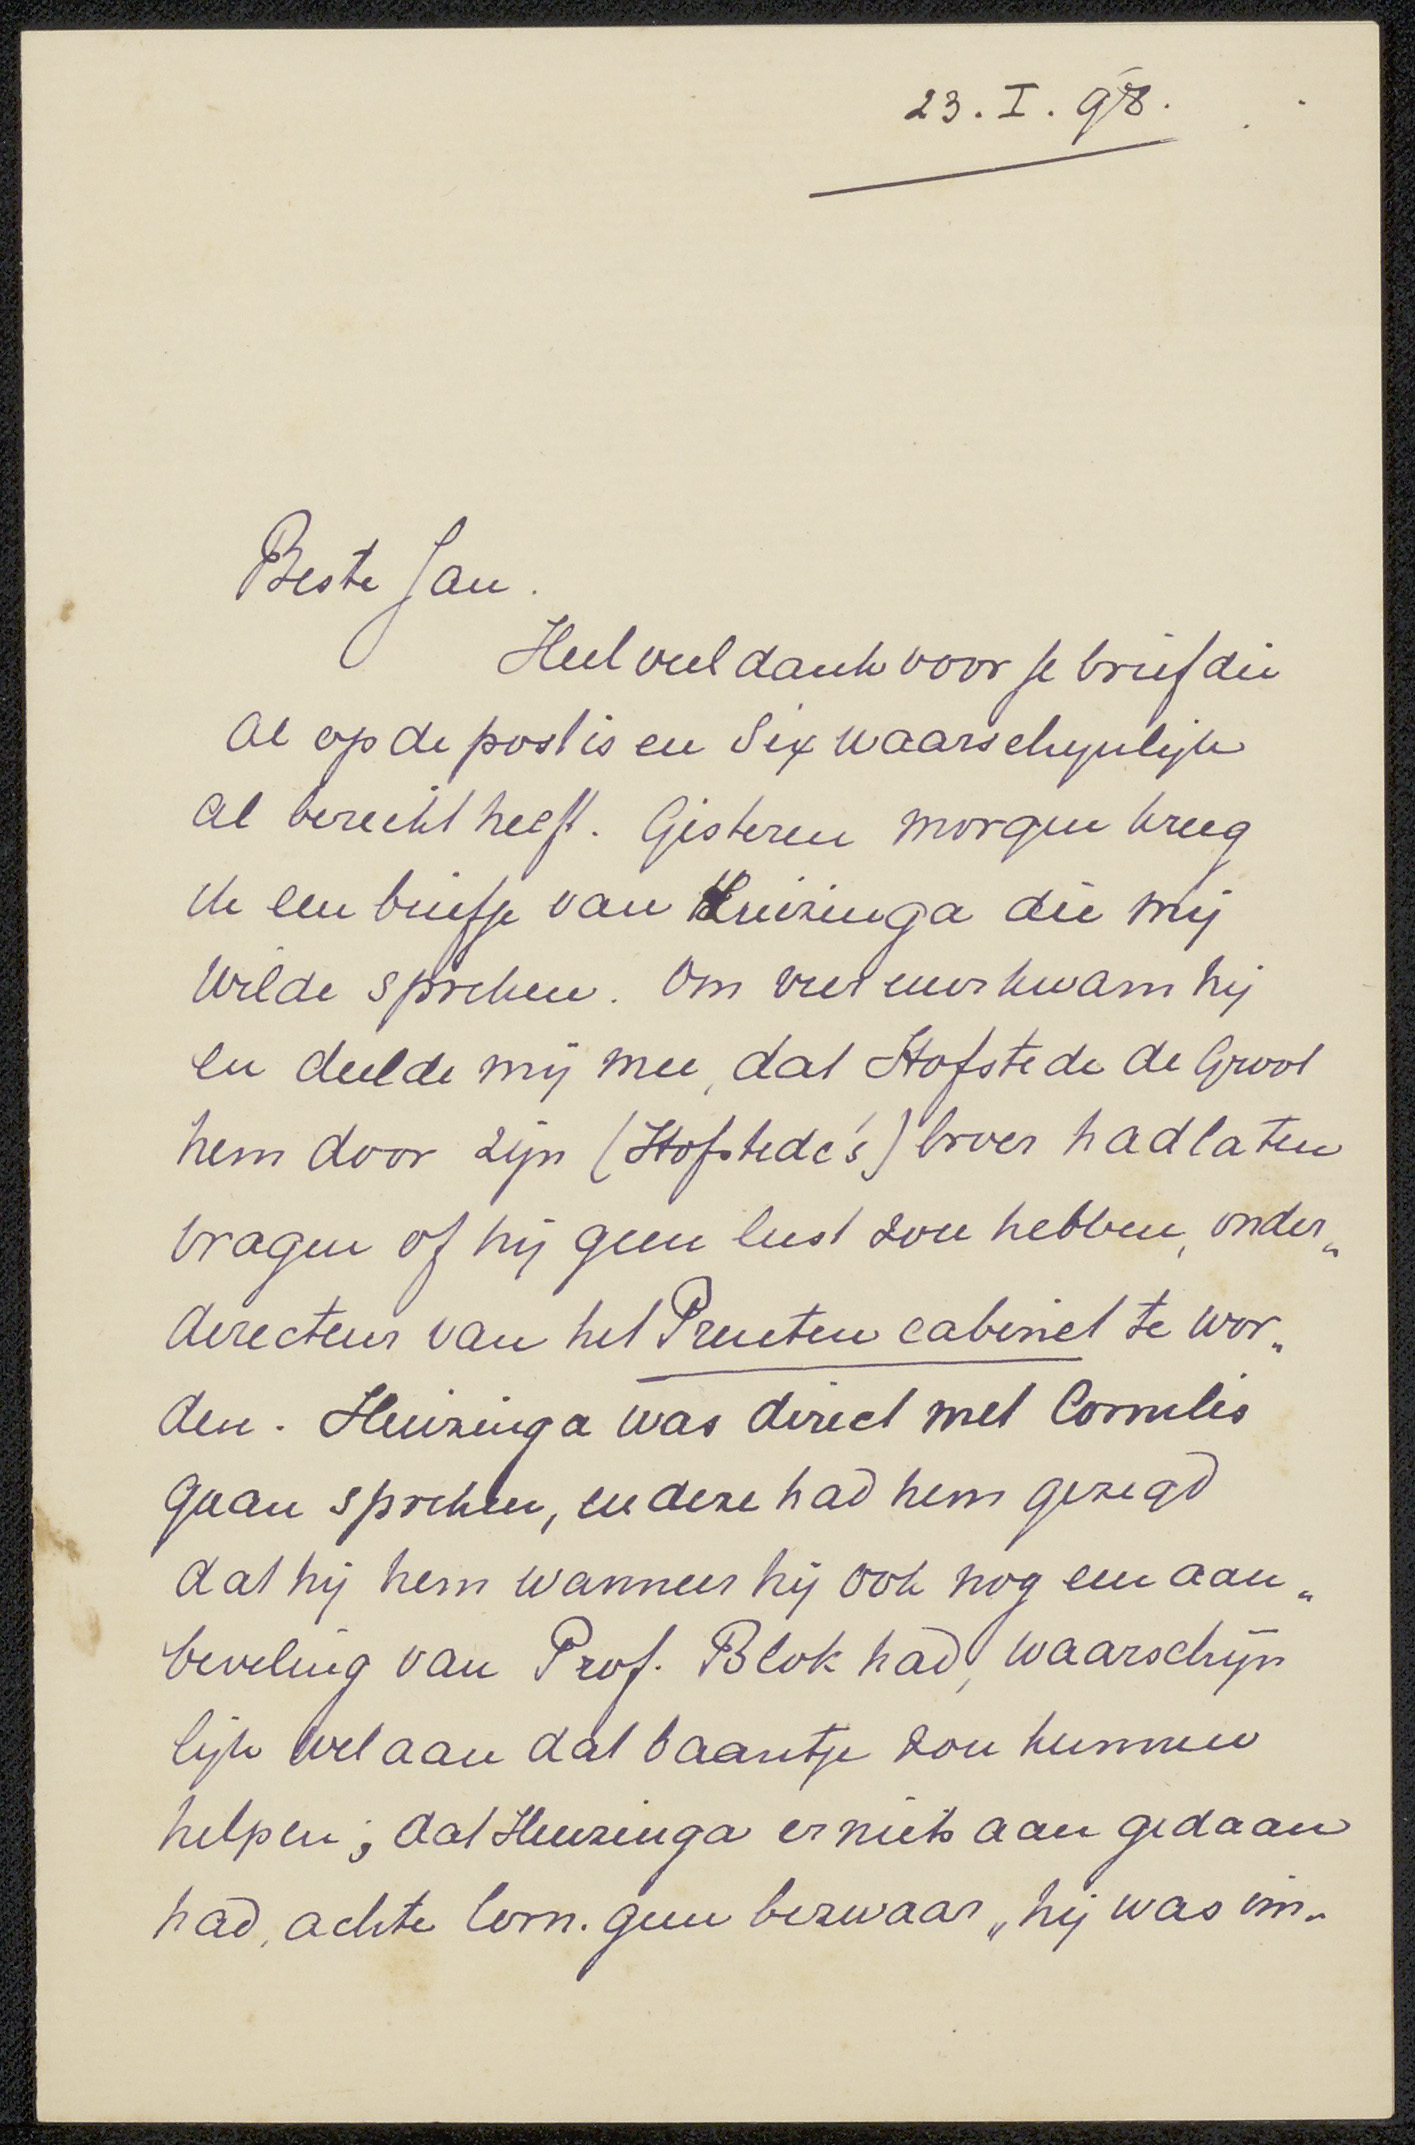 23. I. 98.
Beste Jan.
Heel veel dank voor je brief die
al op de post is en Six waarschynlijk
al bereikt heeft. Gisteren morgen kreeg
ik een briefje van Huizinga die mij
wilde spreken. Om vier uur kwam hij
en deelde mij mee, dat Hofstede de Groot
hem door zijn (Hofstede's) broer had laten
vragen of hij geen lust zou hebben, onder„
directeur van het Prenten cabinet te wor„
den. Huizinga was direct met Cornelis
gaan spreken, en deze had hem gezegd
dat hij hem wanneer hij ook nog een aan„
beveling van Prof. Blok had, waarschijn
lijk wel aan dat baantje zou kunnen
helpen; dat Huizinga er niets aan gedaan
had, achte Corn. geen bezwaar „hij was im„